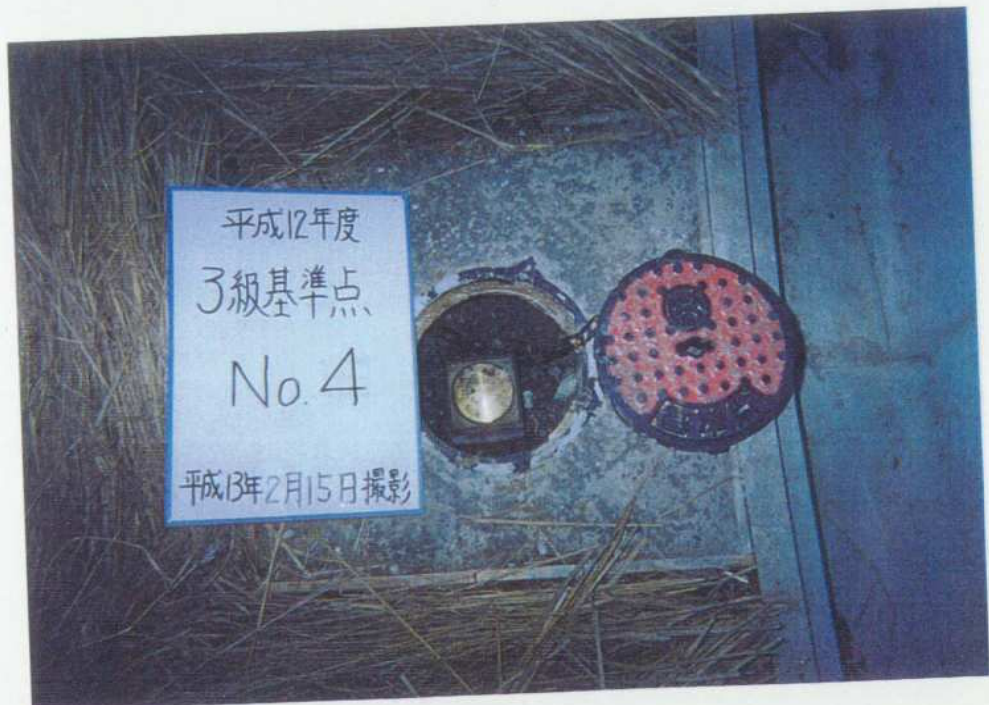 平成12年度
3級基準点
No.4
平成13年2月15日撮影